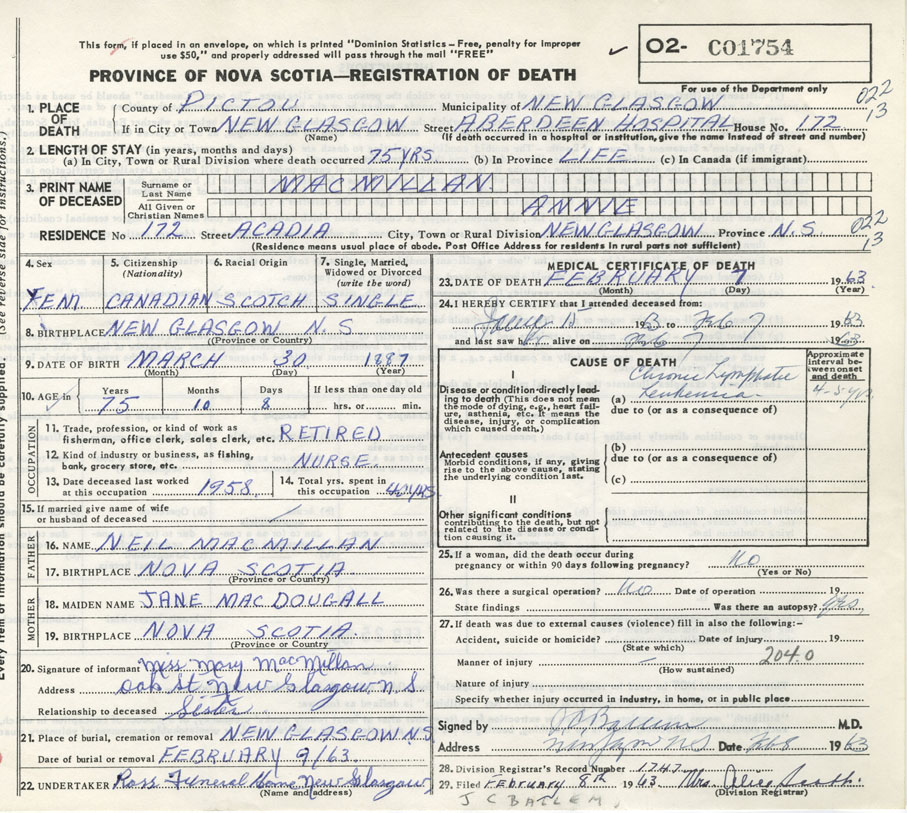 This form, if placed in an envelope, on which is printed "Dominion Statistics – Free, penalty for improper
use $50," and properly addressed will pass through the mail "FREE"
✓ O2- C01754
PROVINCE OF NOVA SCOTIA—REGISTRATION OF DEATH
For use of the Department only
022
13
1. PLACE OF DEATH
County of PICTOU Municipality of NEW GLASGOW
If in City or Town NEW GLASGOW Street ABERDEEN HOSPITAL House No. 172
(Name) (If death occurred in a hospital or institution, give the name instead of street and number)
2. LENGTH OF STAY (in years, months and days)
(a) In City, Town or Rural Division where death occurred 75 YRS. (b) In Province LIFE (c) In Canada (if immigrant)
3. PRINT NAME OF DECEASED
Surname or Last Name MACMILLAN
All Given or Christian Names ANNIE
RESIDENCE No 172 Street ACADIA City, Town or Rural Division NEW GLASGOW Province N.S
022
13
(Residence means usual place of abode. Post Office Address for residents in rural parts not sufficient)
4. Sex FEM
5. Citizenship (Nationality) CANADIAN
6. Racial Origin SCOTCH
7. Single, Married, Widowed or Divorced (write the word) SINGLE
8. BIRTHPLACE NEW GLASGOW N.S
(Province or Country)
9. DATE OF BIRTH MARCH 30 1887
(Month) (Day) (Year)
10. AGE in Years 75 Months 10 Days 8 If less than one day old hrs. or min.
OCCUPATION
11. Trade, profession, or kind of work as fisherman, office clerk, sales clerk, etc. RETIRED
12. Kind of industry or business, as fishing, bank, grocery store, etc. NURSE.
13. Date deceased last worked at this occupation 1958
14. Total yrs. spent in this occupation 40 YRS
15. If married give name of wife or husband of deceased
FATHER
16. NAME NEIL MACMILLAN
17. BIRTHPLACE NOVA SCOTIA
(Province or Country)
MOTHER
18. MAIDEN NAME JANE MACDOUGALL
19. BIRTHPLACE NOVA SCOTIA.
(Province or Country)
20. Signature of informant Miss Mary MacMillan
Address Oak St. New Glasgow N.S.
Relationship to deceased Sister
21. Place of burial, cremation or removal NEW GLASGOW N.S
Date of burial or removal FEBRUARY 9/63.
22. UNDERTAKER Ross Funeral Home New Glasgow
(Name and address)
MEDICAL CERTIFICATE OF DEATH
23. DATE OF DEATH FEBRUARY 7 1963
(Month) (Day) (Year)
24. I HEREBY CERTIFY that I attended deceased from:
1963 to Feb 7 1963
and last saw h alive on Feb 7 1963
CAUSE OF DEATH
Approximate interval between onset and death
I
Disease or condition directly leading to death (This does not mean the mode of dying, e.g., heart failure, asthenia, etc. It means the disease, injury, or complication which caused death.)
(a) Chronic Lymphatic Leukemia 4-5 yrs
due to (or as a consequence of)
Antecedent causes
Morbid conditions, if any, giving rise to the above cause, stating the underlying condition last.
(b)
due to (or as a consequence of)
(c)
II
Other significant conditions contributing to the death, but not related to the disease or condition causing it.
25. If a woman, did the death occur during pregnancy or within 90 days following pregnancy? No
(Yes or No)
26. Was there a surgical operation? No Date of operation 19
State findings Was there an autopsy?
27. If death was due to external causes (violence) fill in also the following:-
Accident, suicide or homicide? Date of injury 19
(State which)
Manner of injury 204.0
(How sustained)
Nature of injury
Specify whether injury occurred in industry, in home, or in public place
Signed by M.D.
Address Date Feb 8 1963
28. Division Registrar's Record Number 1747
29. Filed FEBRUARY 8th 1963 Mrs.
(Division Registrar)
J C BATLEM.
(See reverse side for instructions.)